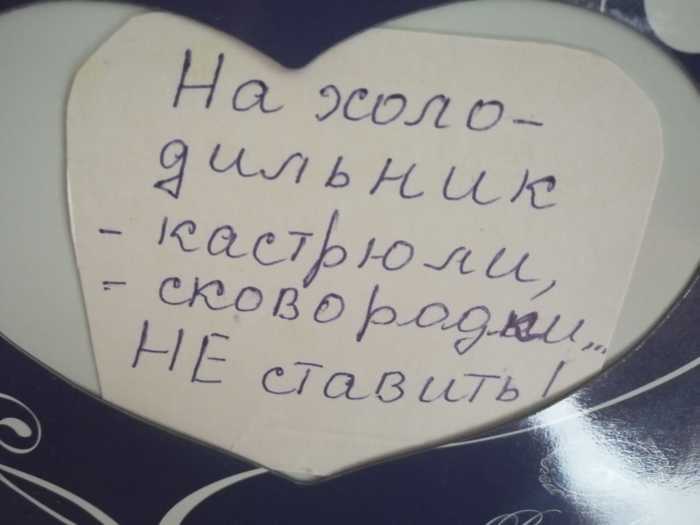 На холо-
дильник
- кастрюли,
- сковородки...
НЕ ставить!